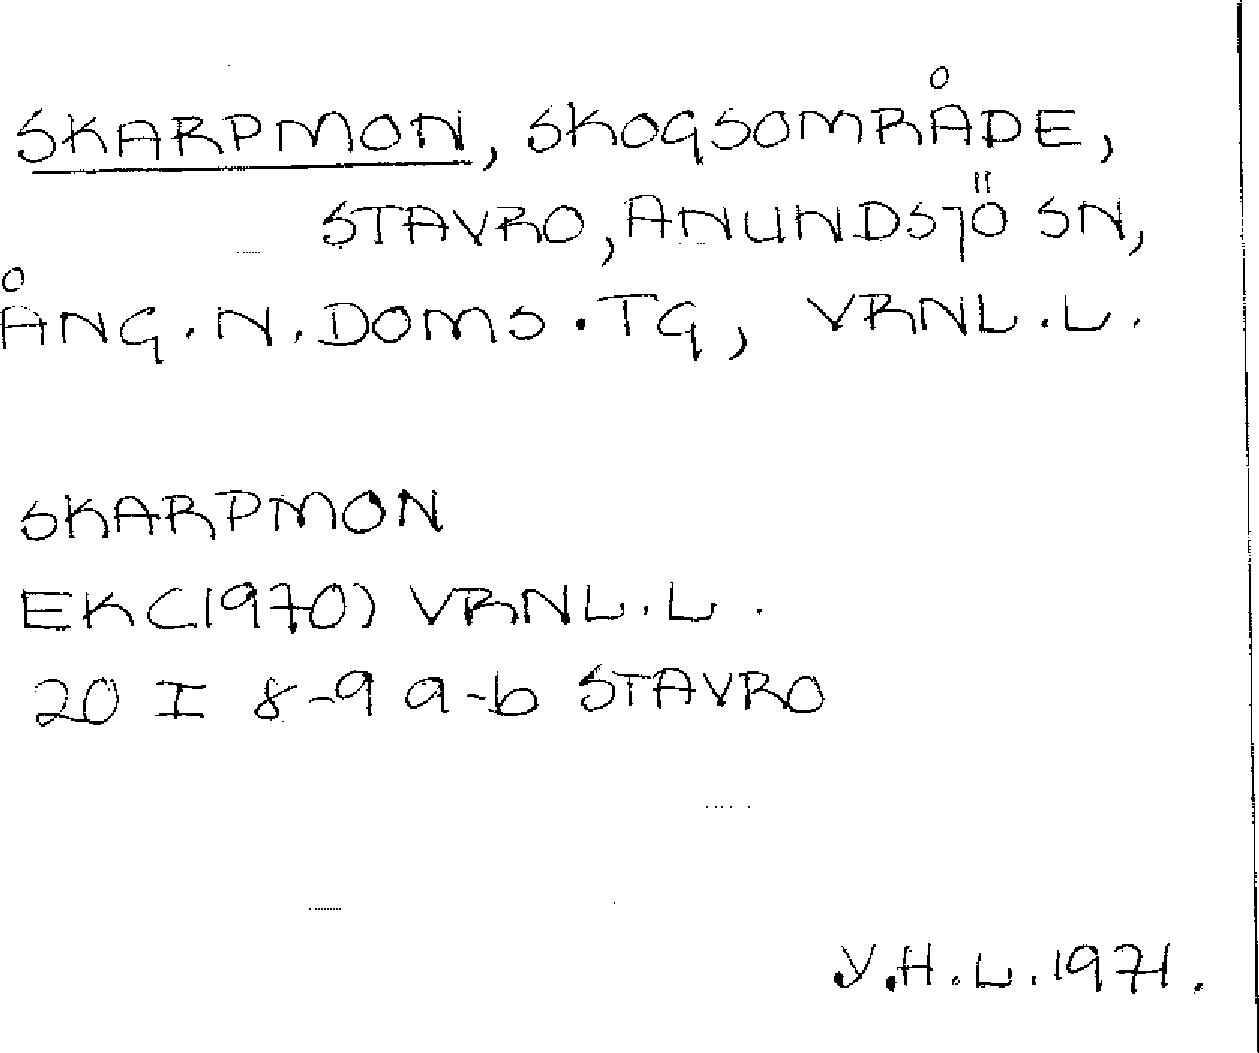 SKARPMON, SKOGSOMRÅDE,
STAVRO, ANUNDSJÖ SN,
ÅNG. N. DOMS. TG, VRNL. L.
SKARPMON
EK (1970) VRNL. L.
20 I 8-9 a-b STAVRO
Y.H.L. 1971.